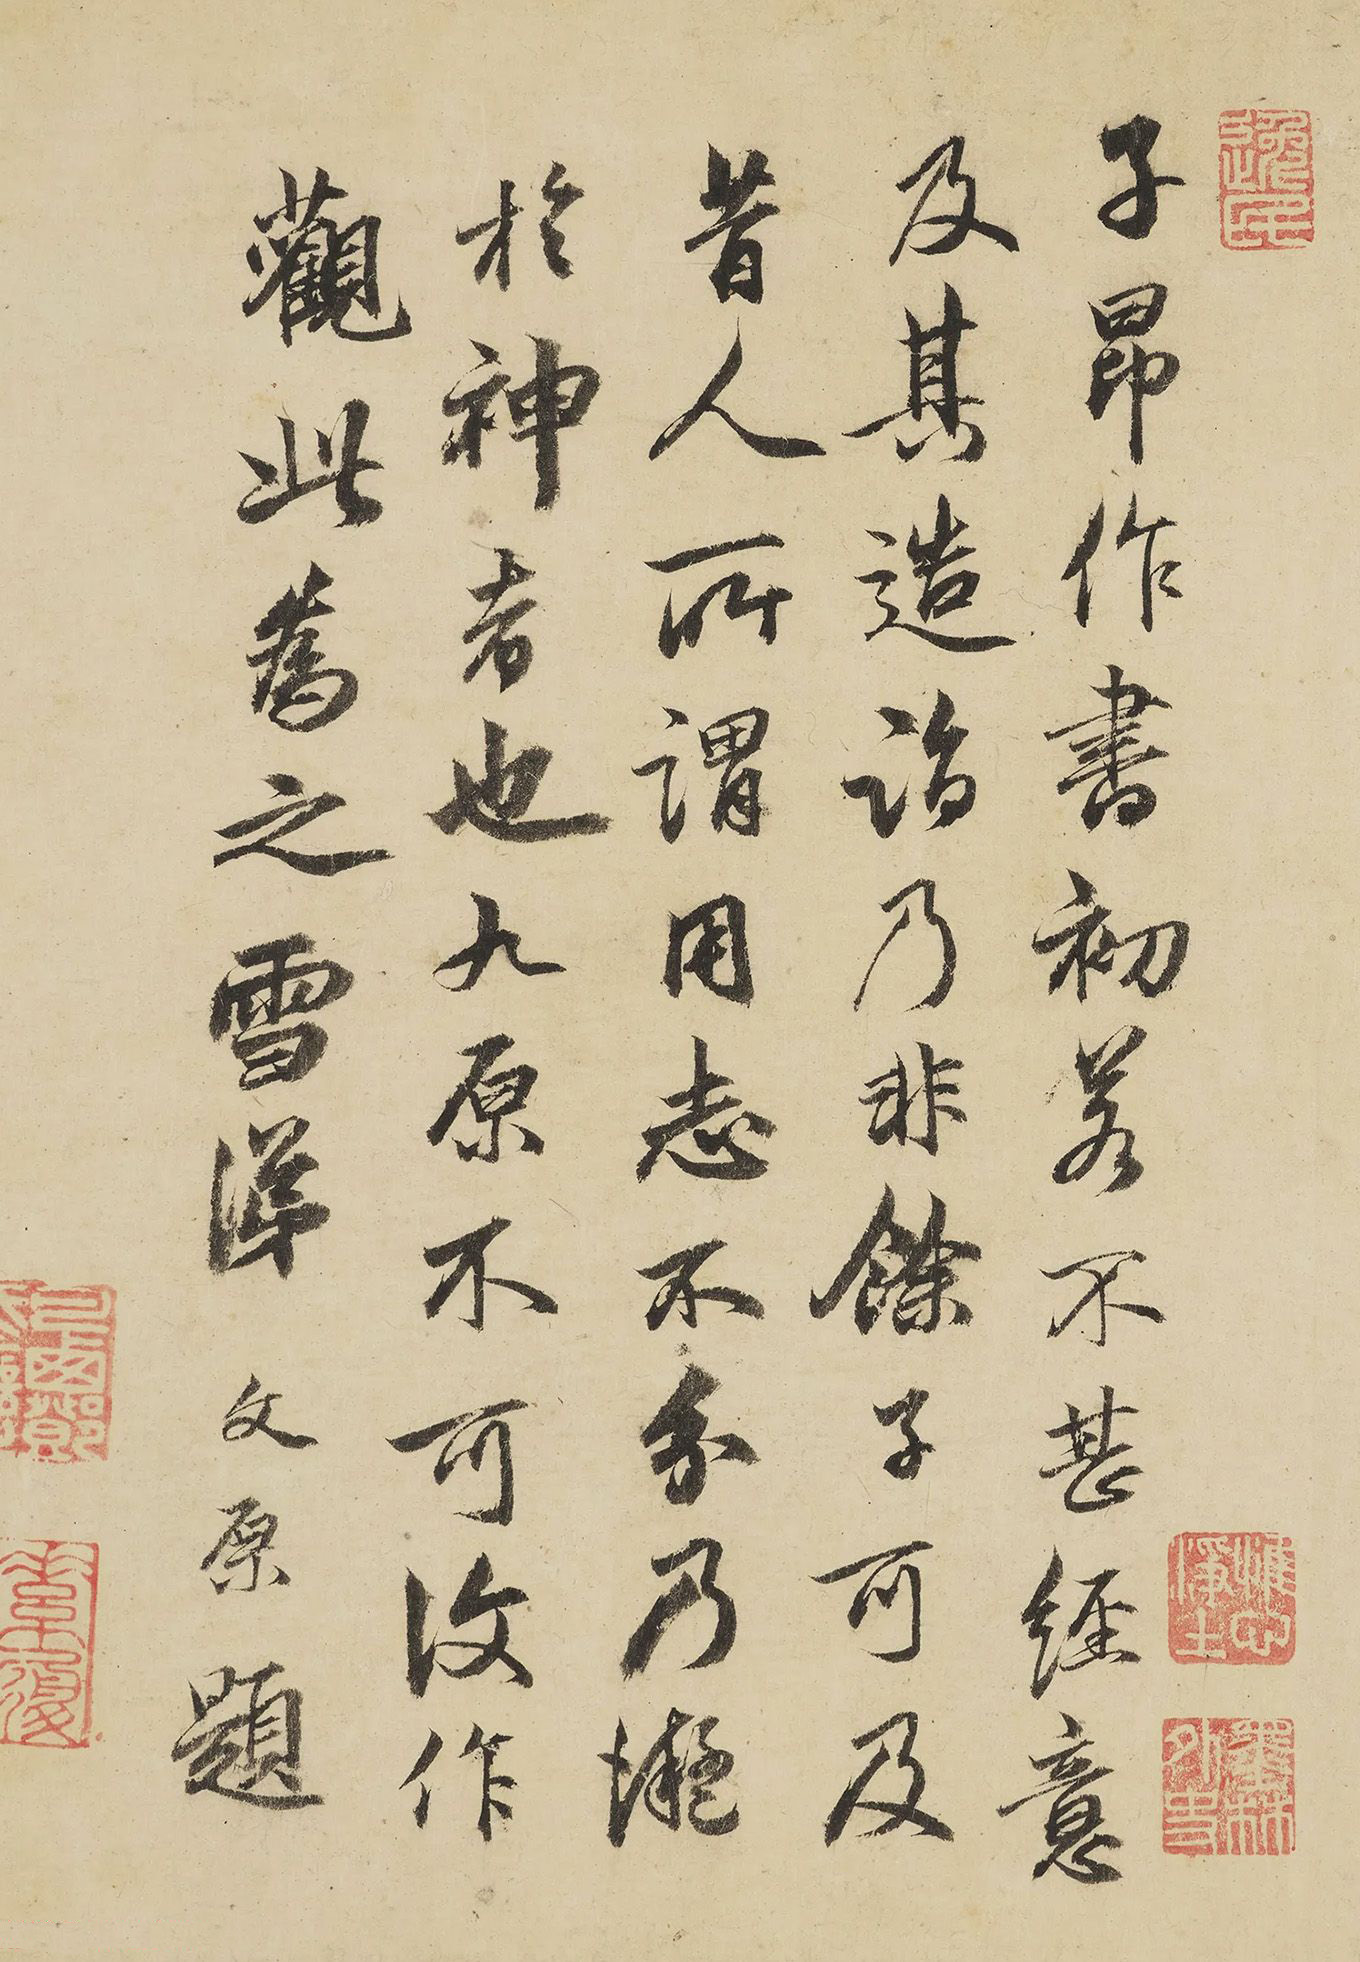 子昂作書初若不甚經意
及其造詣乃非餘子可及
昔人所謂用志不分乃凝
於神者也九原不可復作
觀此為之雪涕文原題